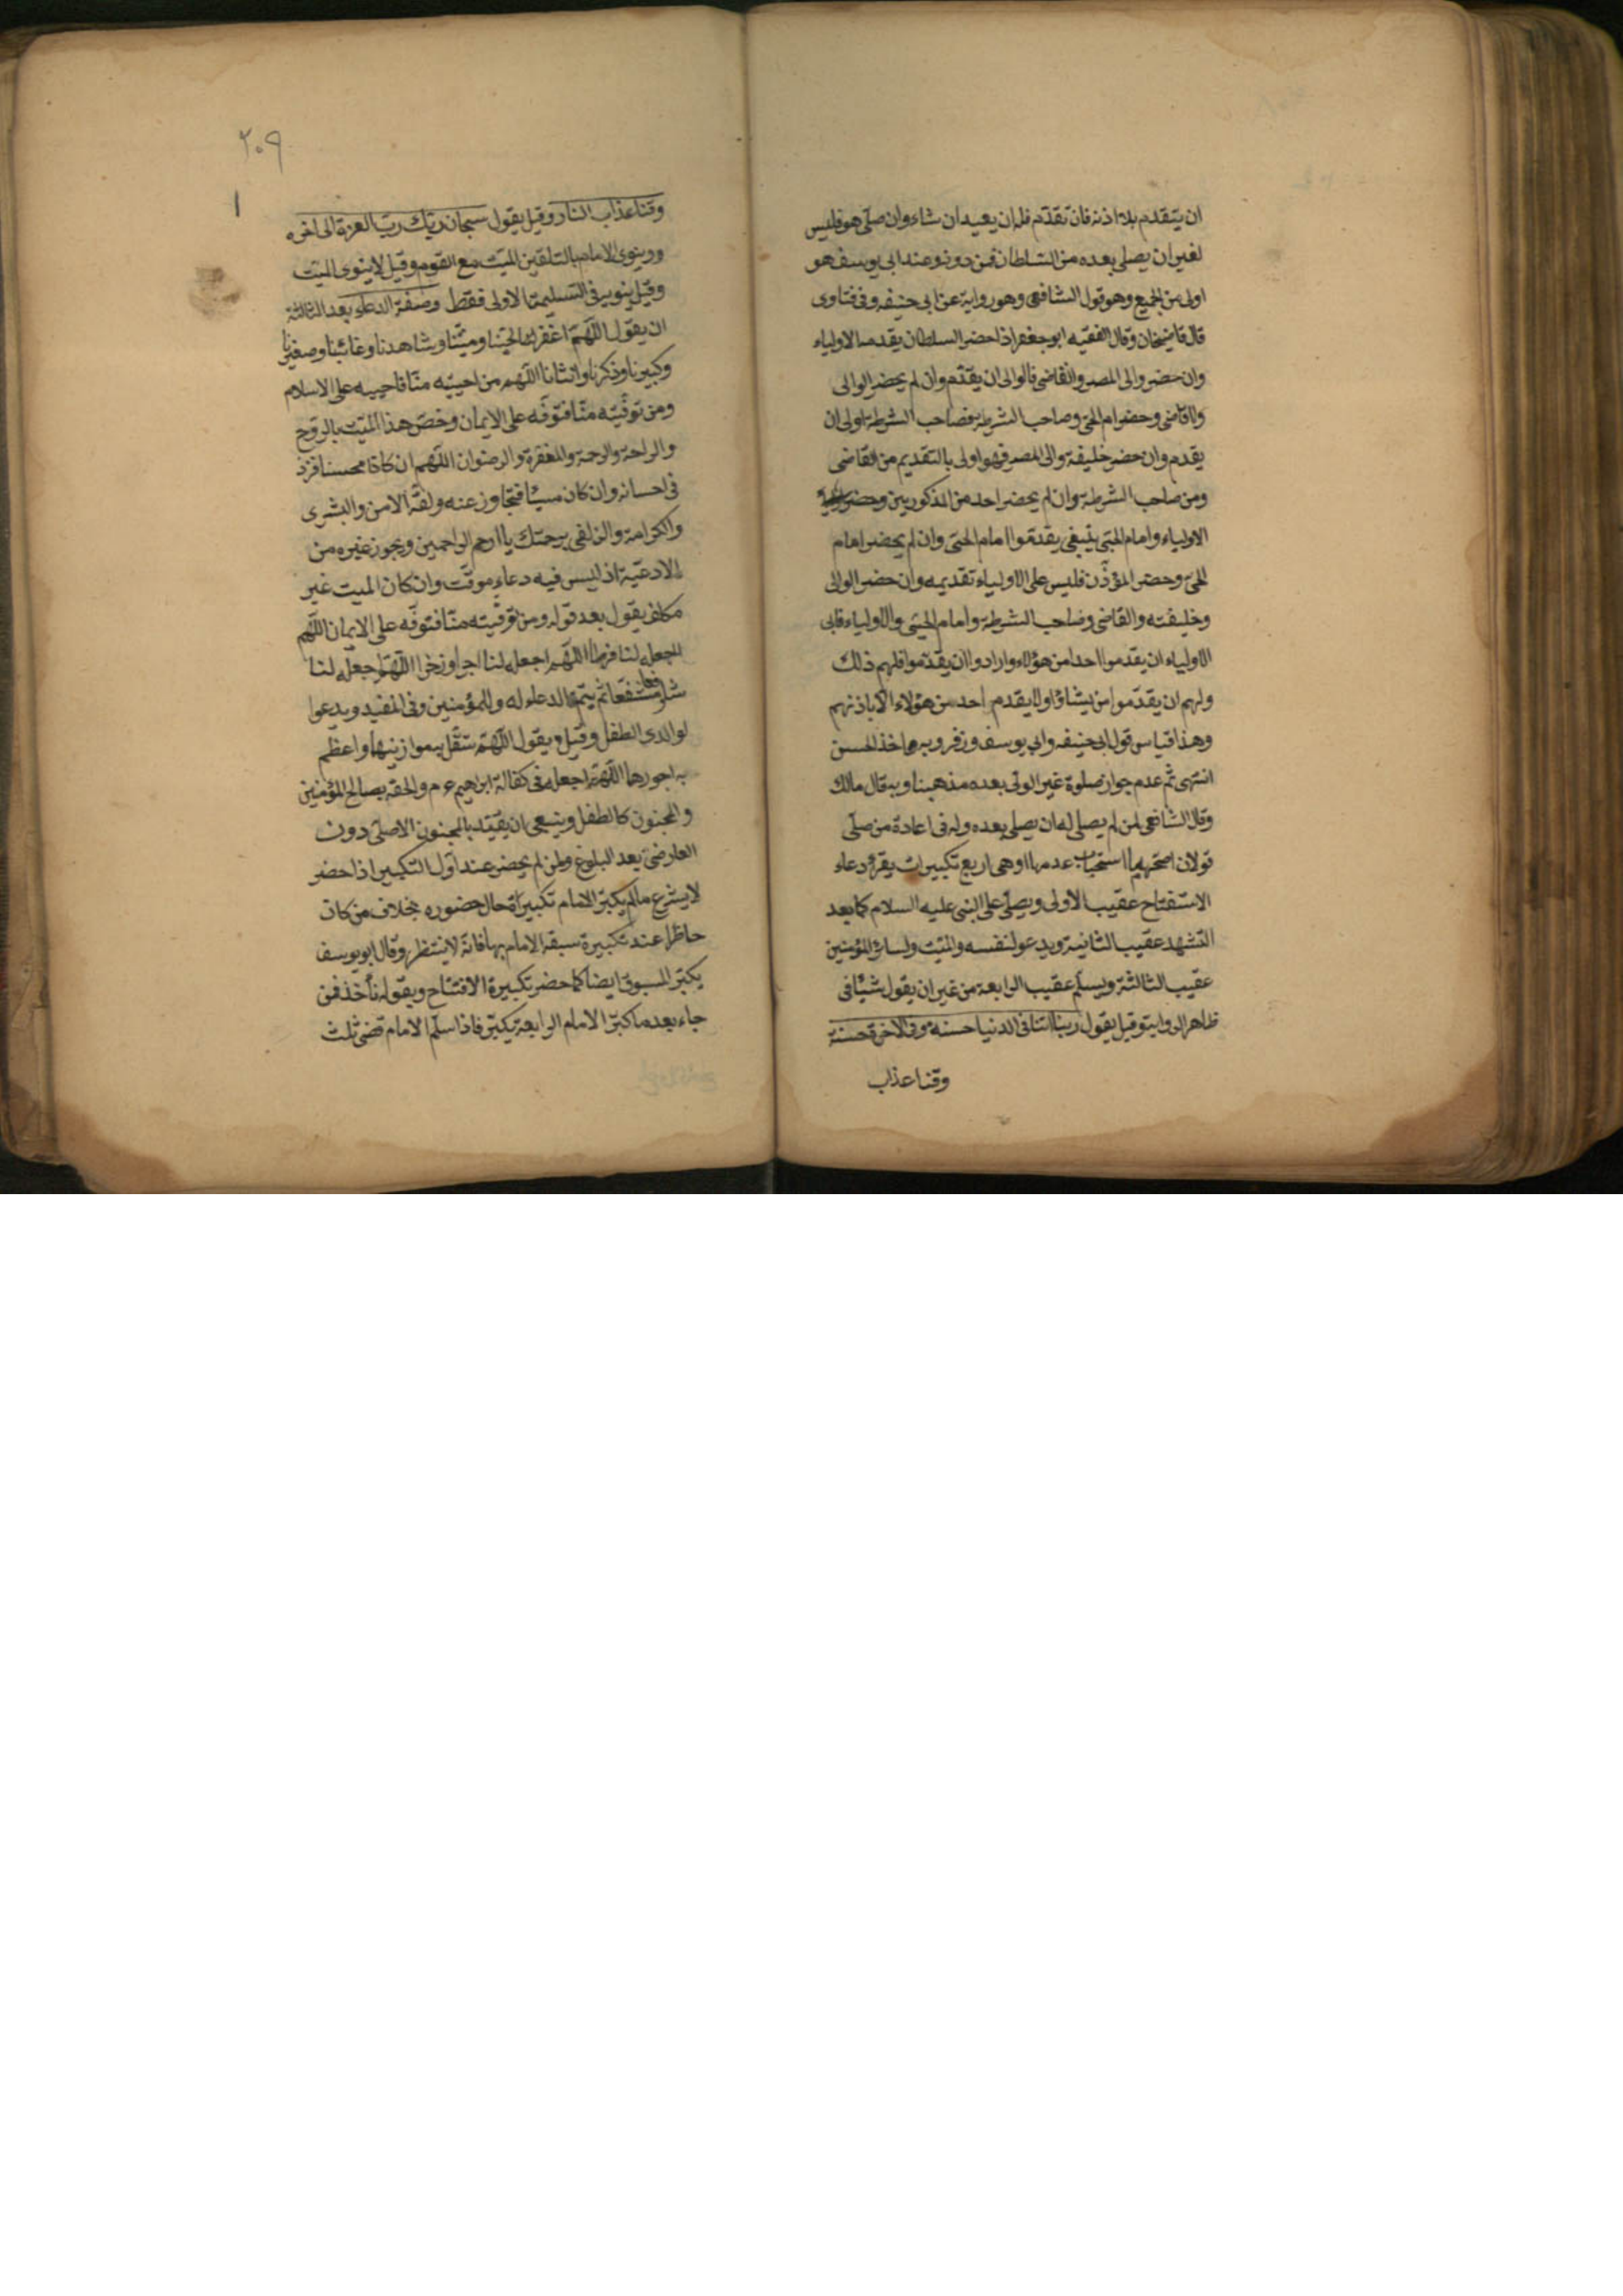 ان يتقدم بلا اذنه فان تقدّم فله ان يعيد ان شاء وان صلّى هو فليس
لغيره ان يصلى بعده من السلطان فمن دونه وعند ابى يوسف هو
اولى من الجميع وهو قول الشافعى وهو رواية عن ابى حنيفه وفى فتاوى
قال قاضيخان وقال الفقيه ابو جعفر اذا حضر السلطان يقدمه الاولياء
وان حضر والى المصر والقاضى فالوالى ان يقدّم وان لم يحضر الوالى
والقاضى وحضر امام الحى وصاحب الشرطة فصاحب الشرطة اولى ان
يقدم وان حضر خليفة والى المصر فهو اولى بالتقديم من القاضى
ومن صاحب الشرطة وان لم يحضر احد من المذكورين وحضر
الاولياء وامام الحىّ ينبغى يقدموا امام الحىّ وان لم يحضر امام
الحىّ وحضر المؤذّن فليس على الاولياء تقديمه وان حضر الوالى
وخليفته والقاضى وصاحب الشرطة وامام الحىّ والاولياء فابى
الاولياء ان يقدموا احدا من هؤلاء وارادوا ان يقدّموا فلهم ذلك
ولهم ان يقدّموا من يشاؤا ولا يقدم احد من هؤلاء الا باذنهم
وهذا قياس قول ابى حنيفه وابى يوسف وزفر وبه اخذ الحسن
انتهى ثم عدم جواز صلوة غير الولّى بعده مذهبنا وبه قال مالك
وقال الشافعى لمن لم يصلى له ان يصلى بعده وله فى اعادة من صلّى
قولان اصحّهما استحباب عدمها وهى اربع تكبيرات يقرء دعاء
الاستفتاح عقيب الاولى ويصلّى على النبى عليه السلام كما بعد
التشهد عقيب الثانية ويدعو لنفسه والميّت ولسائر المؤمنين
عقيب الثالثة ويسلّم عقيب الرابعة من غير ان يقول شيئا فى
ظاهر الرواية وقيل يقول ربنا اتنا فى الدنيا حسنة وفى الاخرة حسنة
وقنا عذاب
٢٠٩
١
وقنا عذاب النار وقيل يقول سبحان ربّك ربّ العزة الى اخره
وينوى الامام بالتلقين الميّت مع القوم وقيل لا ينوى الميّت
وقيل ينويه فى التسليمة الاولى فقط وصفة الدعاء بعد الثالثة
ان يقول اللّهمّ اغفر لحيّنا وميّتنا وشاهدنا وغائبنا وصغيرنا
وكبيرنا وذكرنا وانثانا اللّهم من احييته منّا فاحييه على الاسلام
ومن توفّيته منّا فتوفّه على الايمان وخصّ هذا الميّت بالروّح
والراحة والرحمة والمغفرة والرضوان اللّهم ان كان محسنا فزد
فى احسانه وان كان مسيئا فتجاوز عنه ولقّه الامن والبشرى
والكرامة والزلفى برحمتك يا ارحم الراحمين ويجوز غيره من
الادعيّة اذ ليس فيه دعاء موقّت وان كان الميت غير
مكلف يقول بعد قوله ومن توفّيته منّا فتوفّه على الايمان اللّهم
اجعله لنا فرطا اللّهم اجعله لنا اجرا وذخرا اللّهمّ اجعله لنا
شافعا مشفّعا ثم يتمّ الدعاء له وللمؤمنين وفى المفيد ويدعوا
لوالدى الطفل وقيل ويقول اللّهمّ ثقّل به موازينهما واعظم
به اجورهما اللّهمّ اجعله فى كفالة ابرهيم ع م والحقه بصالح المؤمنين
والمجنون كالطفل وينبغى ان يقيّد بالمجنون الاصلىّ دون
العارضى بعد البلوغ ولمن لم يحضر عند اول التكبير اذا حضر
لا يشرع ما لم يكبّر الامام تكبيرة حال حضوره بخلاف من كان
حاظرا عند تكبيرة سبقه الامام بها فانّه لا ينتظر وقال ابو يوسف
يكبّر المسبوق ايضا كما حضر تكبيرة الافتتاح وبقوله نأخذ فمن
جاء بعد ما كبّر الامام الرابعة يكبّر فاذا سلّم الامام قضى ثلث